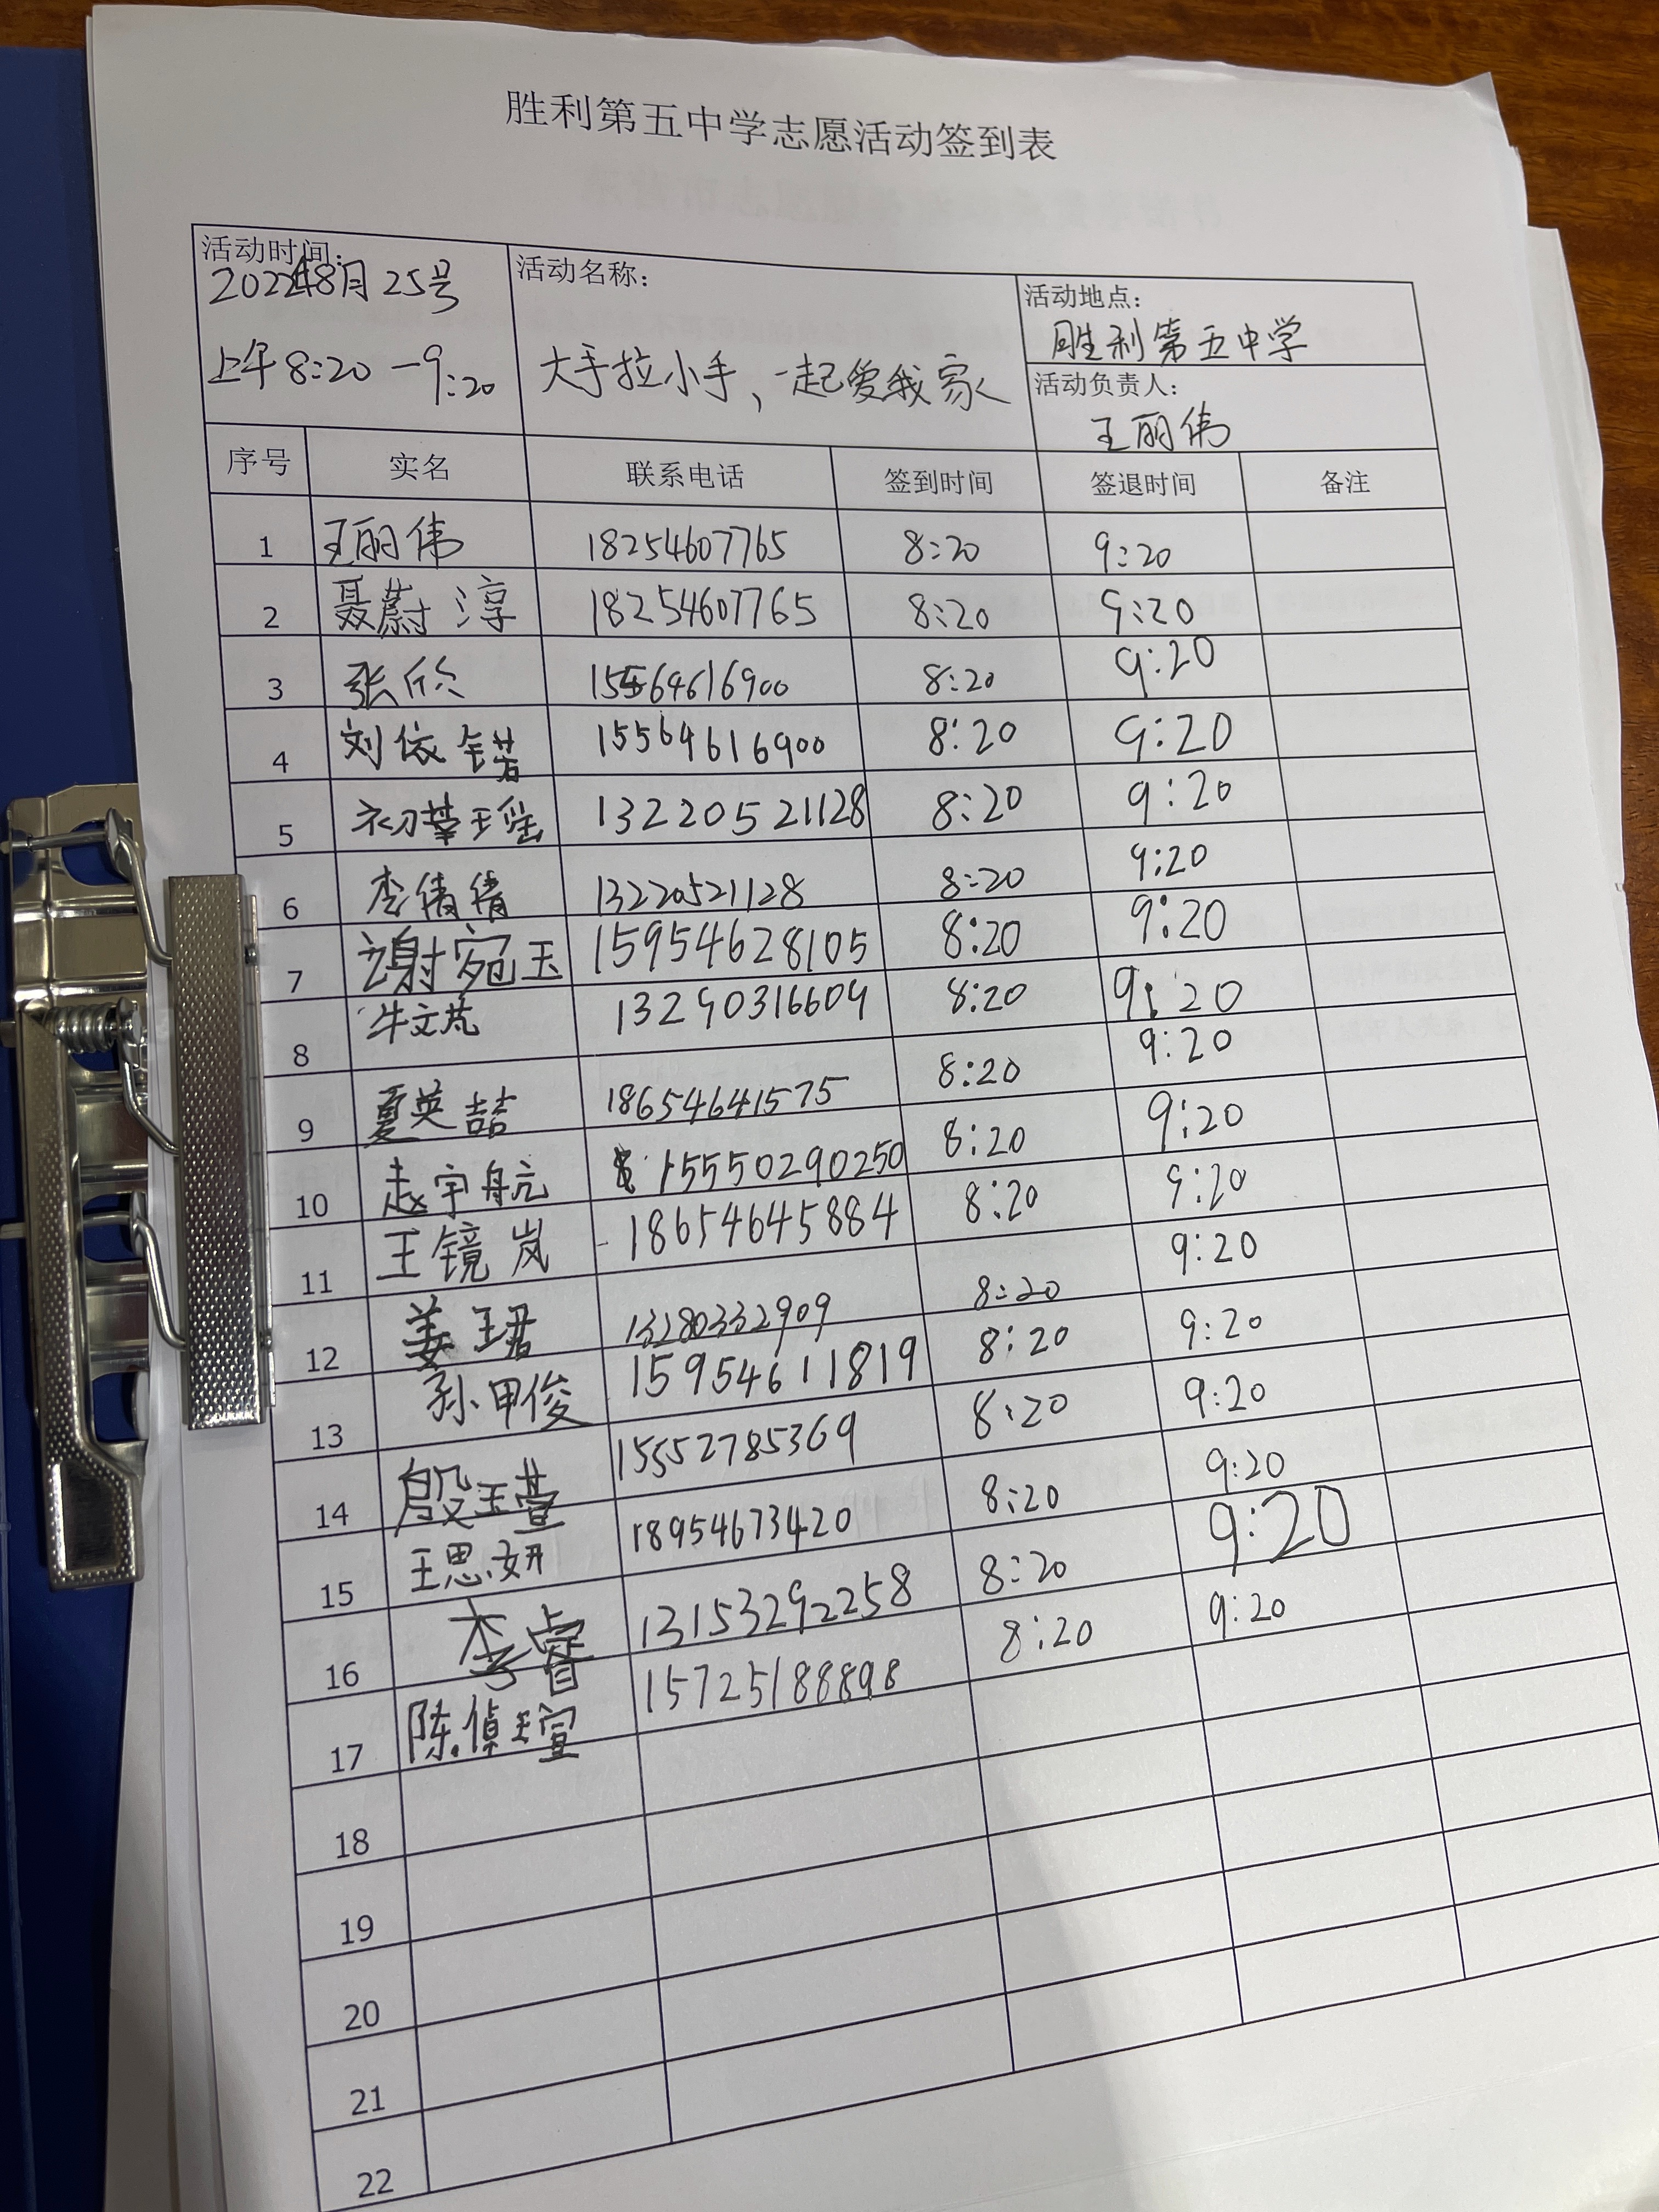 胜利第五中学志愿活动签到表
活动时间:
2022年8月25号
上午8:20-9:20
活动名称:
大手拉小手、一起爱我家
活动地点:
胜利第五中学
活动负责人:
王丽伟
序号 实名 联系电话 签到时间 签退时间 备注
1 王丽伟 18254607765 8:20 9:20
2 聂蔚淳 18254607765 8:20 9:20
3 张欣 15564616900 8:20 9:20
4 刘依锘 15564616900 8:20 9:20
5 初莘瑶 13220521128 8:20 9:20
6 李倩倩 13220521128 8:20 9:20
7 谢宛玉 15954628105 8:20 9:20
8 牛文芃 13290316609 8:20 9:20
9 夏英喆 18654641575 8:20 9:20
10 赵宇航 15550290250 8:20 9:20
11 王镜岚 18654645884 8:20 9:20
12 姜珺 13280332909 8:20 9:20
13 孙甲俊 15954611819 8:20 9:20
14 殷玉萱 15552785369 8:20 9:20
15 王思妍 18954673420 8:20 9:20
16 李睿 13153292258 8:20 9:20
17 陈偵瑄 15725188898 8:20 9:20
18
19
20
21
22